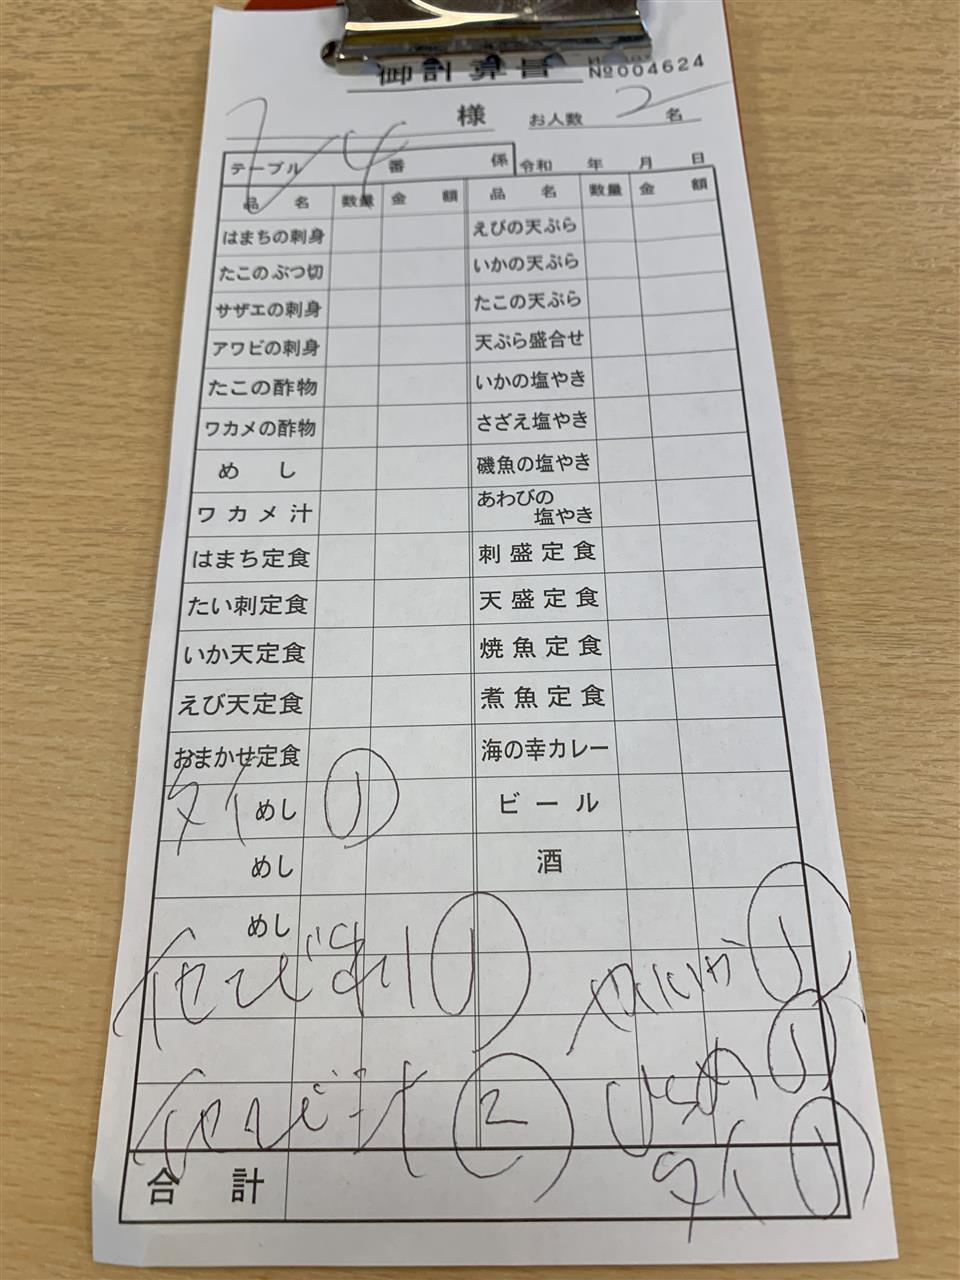 御計算書
№004624
様 お人数 2 名
テーブル 番 係 令和 年 月 日
品 名 数量 金 額 品 名 数量 金 額
はまちの刺身 えびの天ぷら
たこのぶつ切 いかの天ぷら
サザエの刺身 たこの天ぷら
アワビの刺身 天ぷら盛合せ
たこの酢物 いかの塩やき
ワカメの酢物 さざえ塩やき
めし 磯魚の塩やき
ワカメ汁 あわびの
塩やき
はまち定食 刺盛定食
たい刺定食 天盛定食
いか天定食 焼魚定食
えび天定食 煮魚定食
おまかせ定食 海の幸カレー
タイ めし 1 ビール
めし 酒
めし
1
1
2 1
タイ 1
合計